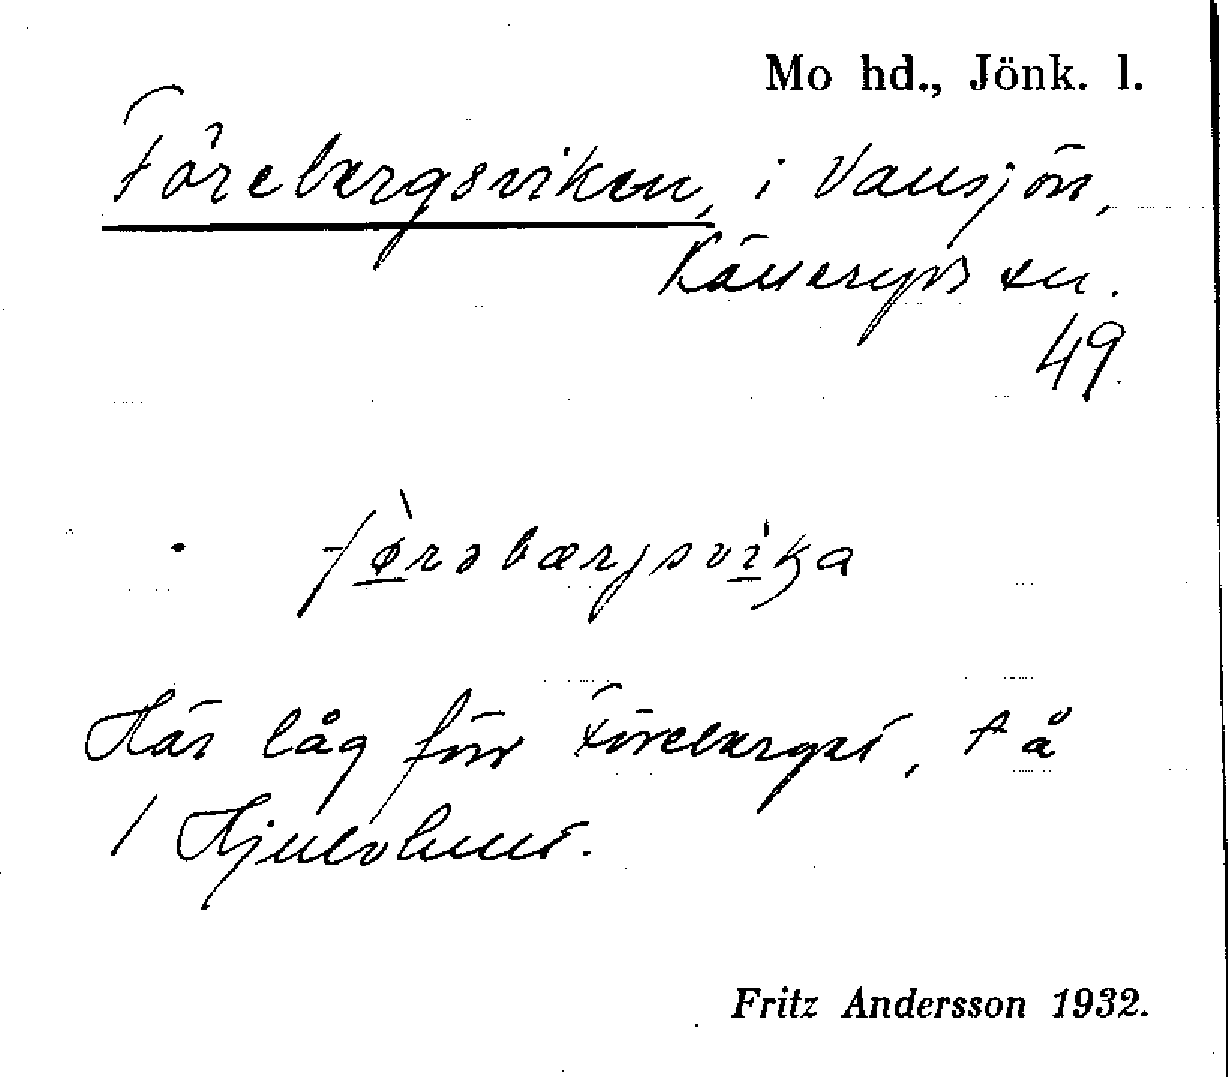 Mo hd., Jönk. l.
Förebergsviken, i Vansjön,
Källeryds sn.
49.
fø̀rəbærjsvika
Här låg förr Föreberget, t å
1 Hjulolund.
Fritz Andersson 1932.